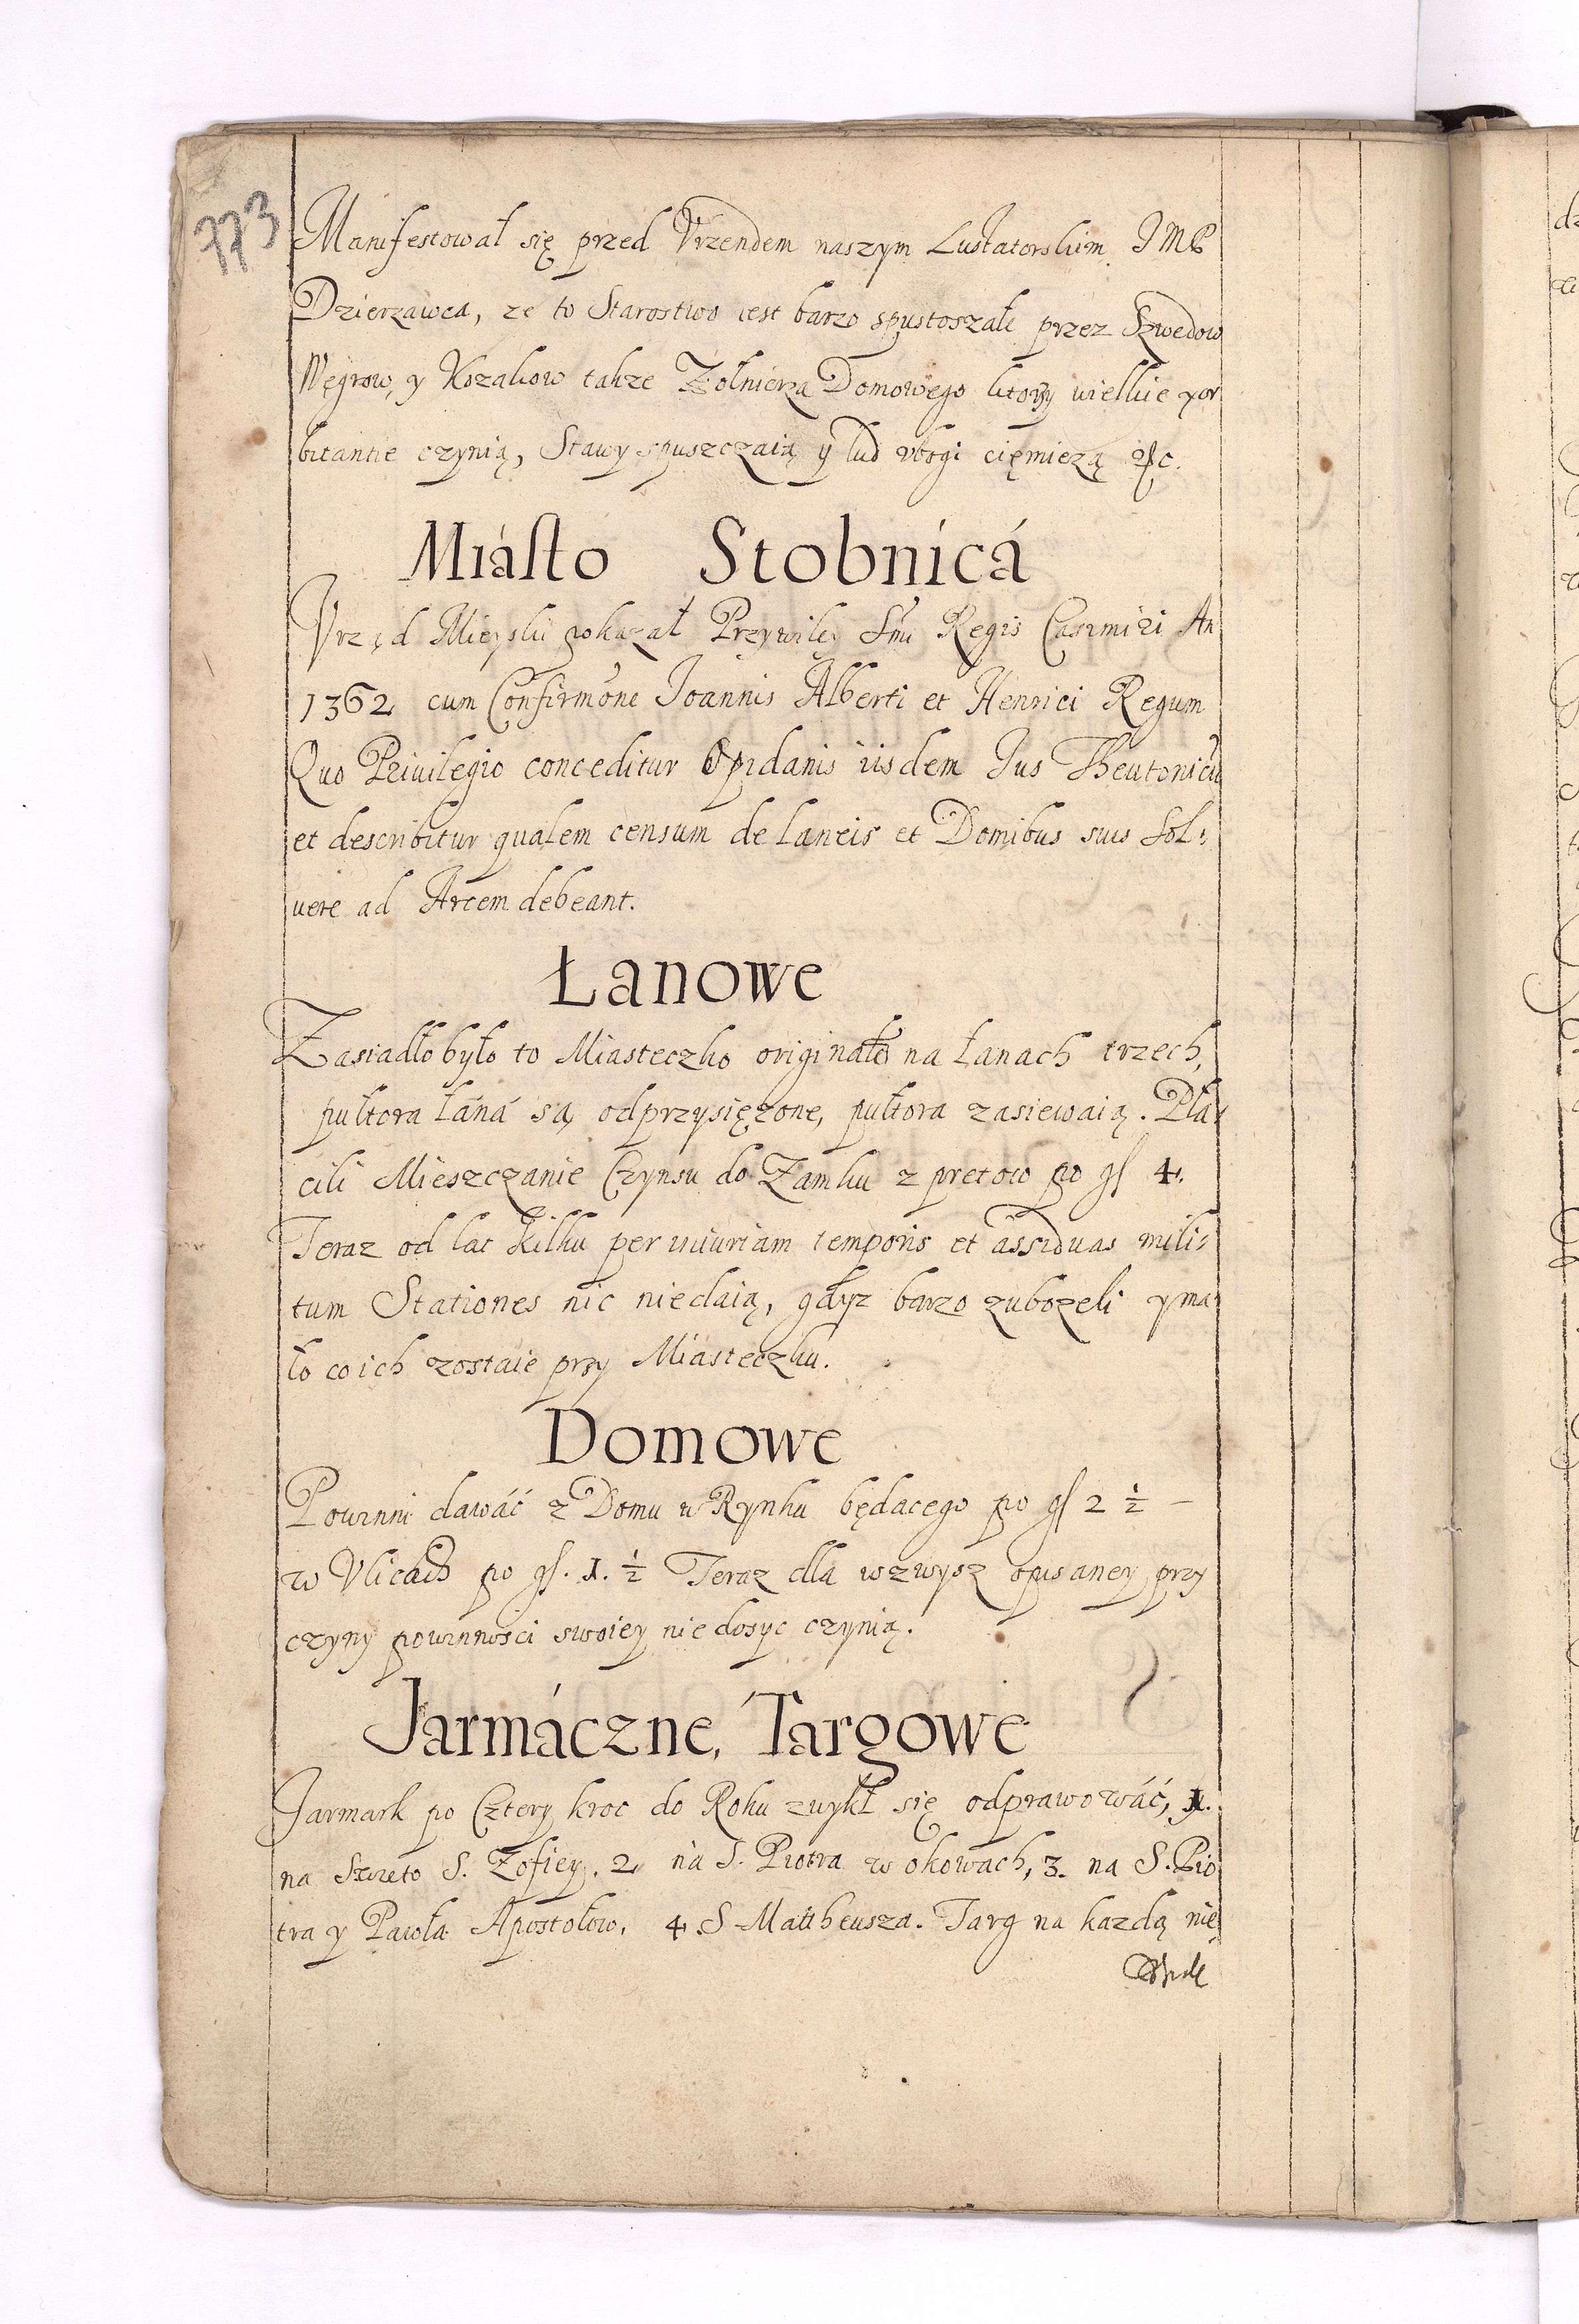 773
Manifestował się przed Vrzendem naszym Lustratorskim JMP
Dzierzawca, ze to Starostwo iest barzo spustoszałe przez Szwedow
Węgrow, y Kozakow takze Zołnierza Domowego ktory wielkie yor
bitantie czynią, Stawy spuszczaią y lud vbogi ciemięzą etc.
Miásto Stobnicá
Vrząd Mieyski pokazał Przywiley Smi Regis Casimiri An
1362 cum Confirmone Joannis Alberti et Henrici Regum
Quo Priuilegio conceditur Opidanis iisdem Jus Theutonicu
et describitur qualem censum de laneis et Domibus suis Sol:
uere ad Arcem debeant.
Łanowe
Zasiadło było to Miasteczko originało na łanach trzech,
pułtora łáná są odprzysięzone, pułtora zasiewaią. Pła:
cili Mieszczanie Czynsu do Zamku z pretow po gſ 4.
Teraz od lat kilku per iniuriam temporis et assiduas mili:
tum Stationes nic niedaią, gdyz barzo zubozeli y ma
ło co ich zostaie przy Miasteczku.
Domowe
Powinni dawáć z Domu w Rynku będacego po gſ 2 ½ –
w Vlicach po gſ. 1. ½ Teraz dla wzwysz opisaney przy
czyny powinności swoiey niedosyc czynią.
Jarmáczne, Targowe
Jarmark po Cztery kroc do Roku zwykł się odprawowáć, 1.
na Swieto S. Zofiey. 2 ná S. Piotra w okowach, 3. na S. Pio
tra y Pawła Apostołow, 4 S Mattheusza. Targ na kazdą nie